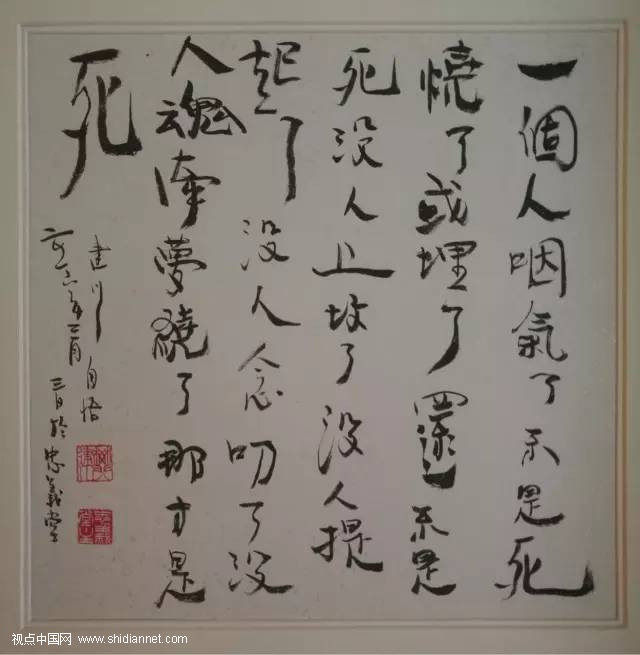 一個人咽氣了不是死
燒了或埋了還不是
死没人上坟了没人提
起了没人念叨了没
人魂牽夢繞了那才是
死
建川自悟
年二月三日於忠義堂
视点中国网 www.shidiannet.com